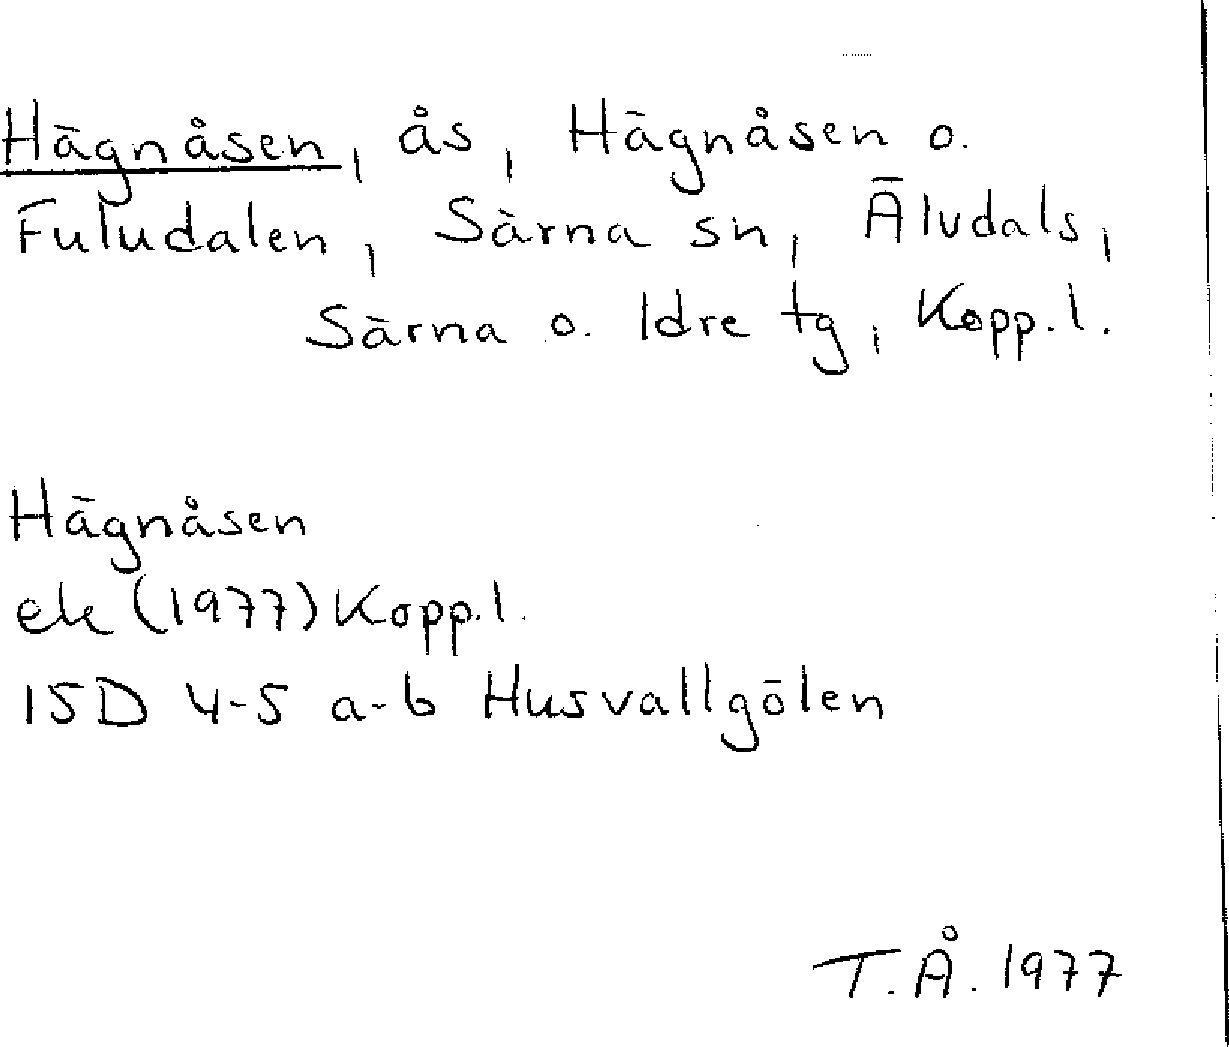 Hägnåsen, ås, Hägnåsen o.
Fuludalen, Särna sn, Älvdals,
Särna o. Idre tg, Kopp.l.
Hägnåsen
ek (1977) Kopp.l.
15D 4-5 a-b Husvallgölen
T.Å. 1977